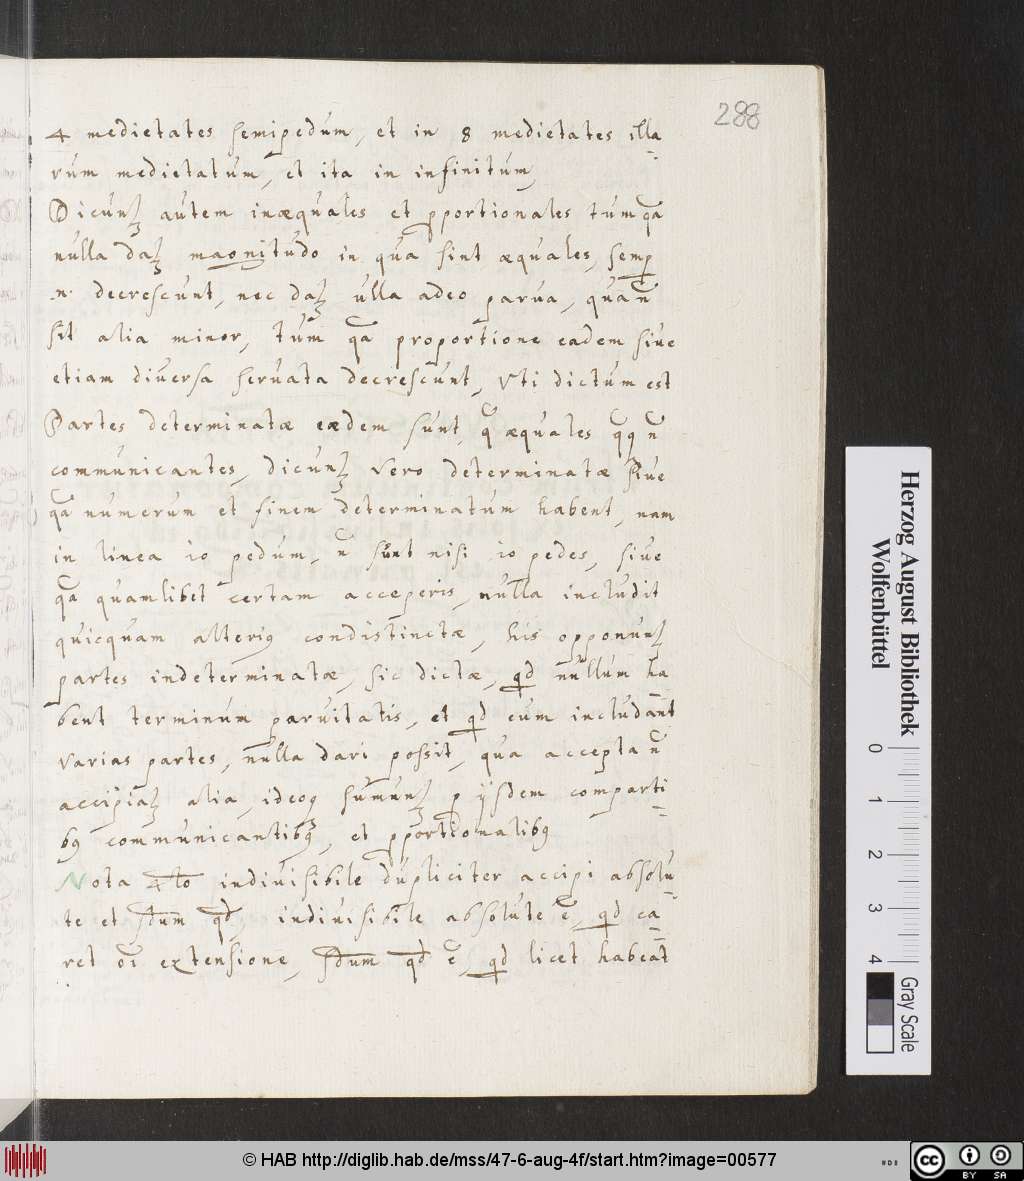 288
4 medietates semipedum, et in 8 medietates illa-
rum medietatum, et ita in infinitum,
Dicunꝫ autem inæquales et ꝓportionales tum qa
nulla daꝫ magnitudo in qua sint æquales, semꝑ
.n. decrescunt, nec daꝫ ulla adeo parua, quā n̄
sit alia minor, tum qa proportione eadem siue
etiam diuersa seruata decrescunt, Vti dictum est
Partes determinatæ eædem sunt, q̄ æquales q̄q n̄
communicantes, dicunꝫ vero determinatæ siue
qa numerum et finem determinatum habent, nam
in linea 10 pedum, n̄ sunt nisi 10 pedes, siue
qa quamlibet certam acceperis, nulla includit
quicquam alteriꝰ condistinctæ, his opponunꝫ
partes indeterminatæ, sic dictæ, qd nullum ha
bent terminum paruitatis, et qd cum includant
varias partes, nulla dari possit, qua accepta n̄
accipiaꝫ alia, ideoq sumunꝫ ꝑ ijsdem comparti-
bꝰ communicantibꝰ, et ꝓportionalibꝰ
Nota 4to indiuisibile dupliciter accipi absolu-
te et sdum qd, indiuisibile absolute ē, qd ca-
ret oī extensione, sdum qd ē, qd licet habeat
Herzog August Bibliothek
Wolfenbüttel
0 1 2 3 4
Gray Scale
© HAB http://diglib.hab.de/mss/47-6-aug-4f/start.htm?image=00577
cc BY SA